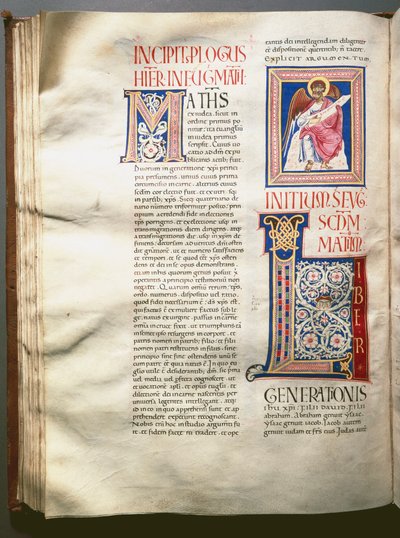 INCIPIT PLOGUS
MATHS
ex iudea. sicut in
ordine primus po
nitur: ita euangliū
in iudea primus
scripsit. Cuius uo
catio ad dm ex pu
blicanis actib; fuit.
Duorum in generatione xpi princi
pia presumens. unius cuius prima
circumcisio in carne. alterius cuius
scdm cor electio fuit. et ex utrisq;
in patrib; xps. Sicq; quaternario de
nario numero triformiter posito: prin
cipium a credendi fide in electionis
tempus porrigens. et ex electione usq; in
transmigrationis diem dirigens. atq;
a transmigrationis die usq; in xpm de
finiens: decursam aduentus dni osten
dit
et tempori. et se quod
operis testimonii non
negaret. Quarum omniū rerum. tēps.
ordo. numerus. dispositio uel ratio.
quod fidei necessariū ē: ds xps est.
qui factus ē ex muliere. factus sub le
ge. natus ex uirgine. passus in carne.
omnia in cruce fixit. ut triumphans ea
in semet ipso resurgens in corpore. et
patris nomen in patrib; filio: et filii
nomen patri restituens in filiis. sine
principio sine fine ostendens unū se
cum patre ēē quia unus ē. In quo eu
glio utile ē desiderantib; dm. sic pma
uel media uel pfecta cognoscere. ut
et uocationē apli. et opus euglii. et
dilectionē dei in carne nascentis per
uniuersa legentes intellegant. atq;
id in eo in quo apprehensi sunt et ap
prehendere expetunt recognoscant.
Nobis eni hoc in studio argumti fu
it. et fidem factę rei tradere. et ope
rantis dei intellegendam diligenter
ēē dispositionē querentib; ñ tacere.
EXPLICIT ARGUMENTUM
INITIUM S. EUG.
SCDM
MATHM
LIBER
GENERATIONIS
ihu xpi. filii dauid. filii
abraham. Abraham genuit ysaac.
ysaac genuit iacob. Iacob autem
genuit iudam et frs eius. Iudas autē